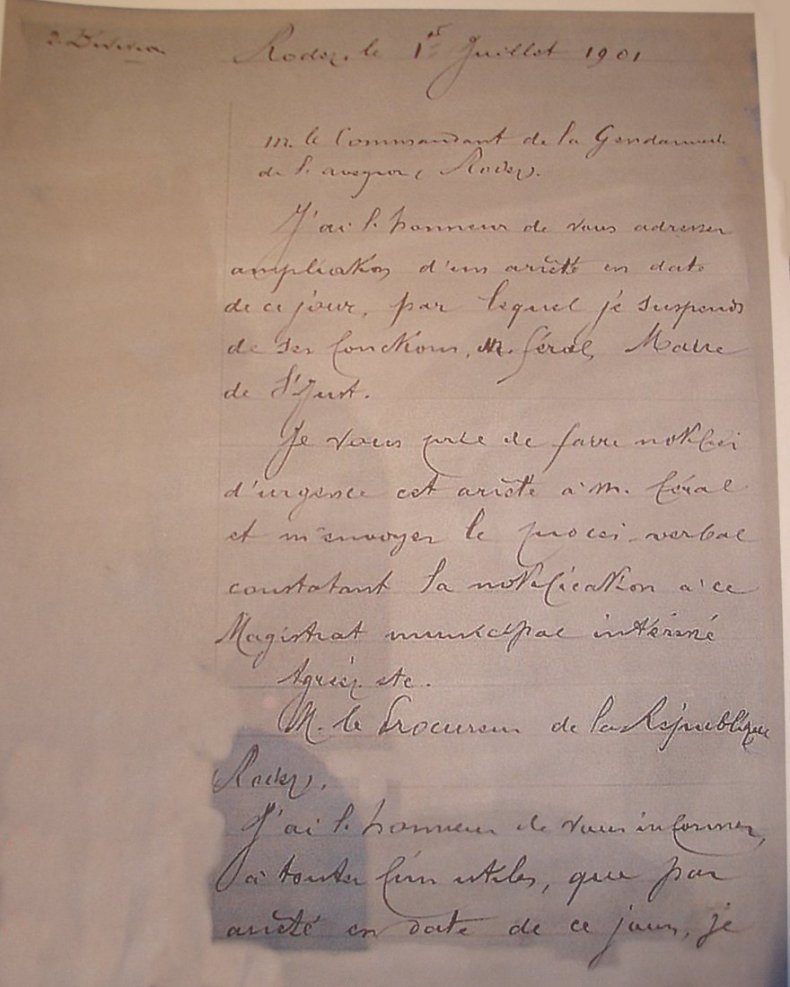 2e Division
Rodez, le 1er Juillet 1901
M. le Commandant de la Gendarmerie
de l'aveyron, Rodez.
J'ai l'honneur de vous adresser
ampliation d'un arrêté en date
de ce jour, par lequel je suspends
de ses fonctions, M. Féral, Maire
de St Just.
Je vous prie de faire notifier
d'urgence cet arrêté à M. Féral
et m'envoyer le procès-verbal
constatant la notification à ce
Magistrat municipal intéressé
Agréez etc.
M. le Procureur de la République
Rodez.
J'ai l'honneur de vous informer,
à toutes fins utiles, que par
arrêté en date de ce jour, je